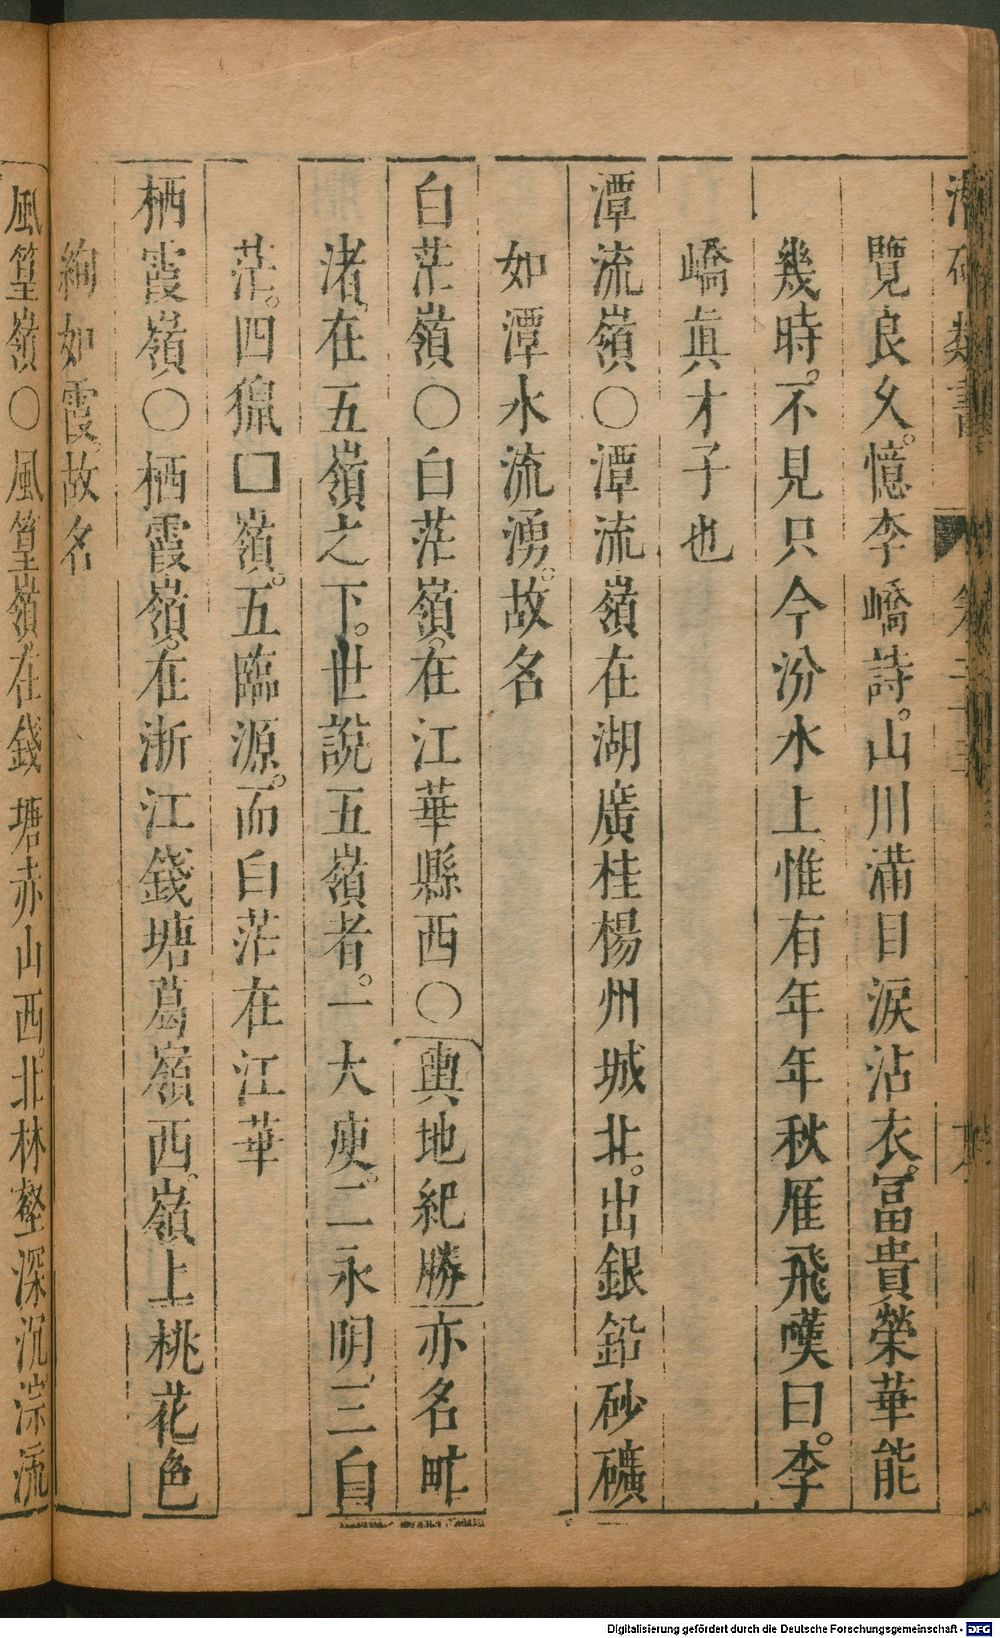 覽良久。憶李嶠詩。山川滿目淚沾衣。冨貴榮華能
幾時。不見只今汾水上惟有年年秋雁飛嘆曰。李
嶠眞才子也
潭流嶺○潭流嶺在湖廣桂楊州城北。出銀鉛砂礦
如潭水流湧。故名
白茫嶺○白茫嶺。在江華縣西○輿地紀勝亦名甿
渚。在五嶺之下。世說五嶺者。一大庾。二永明。三白
茫。四猽□嶺。五臨源。而白茫在江華
栖霞嶺○栖霞嶺。在浙江錢塘葛嶺西。嶺上桃花色
絢如霞。故名
風篁嶺○風篁嶺。在錢塘赤山西。北林壑深沉淙流
Digitalisierung gefördert durch die Deutsche Forschungsgemeinschaft - DFG